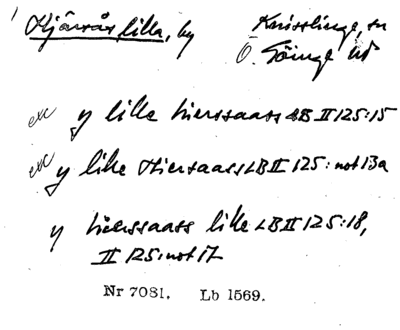 Hjärsås lilla, by Knisslinge, sn
Ö. Göinge hd
y lille Hierssaass LB II 125:15
y lille Hiersaass LB II 125:not 13a
y Hierssaass lille LB II 125:18,
II 125:not 17
Nr 7081. Lb 1569.